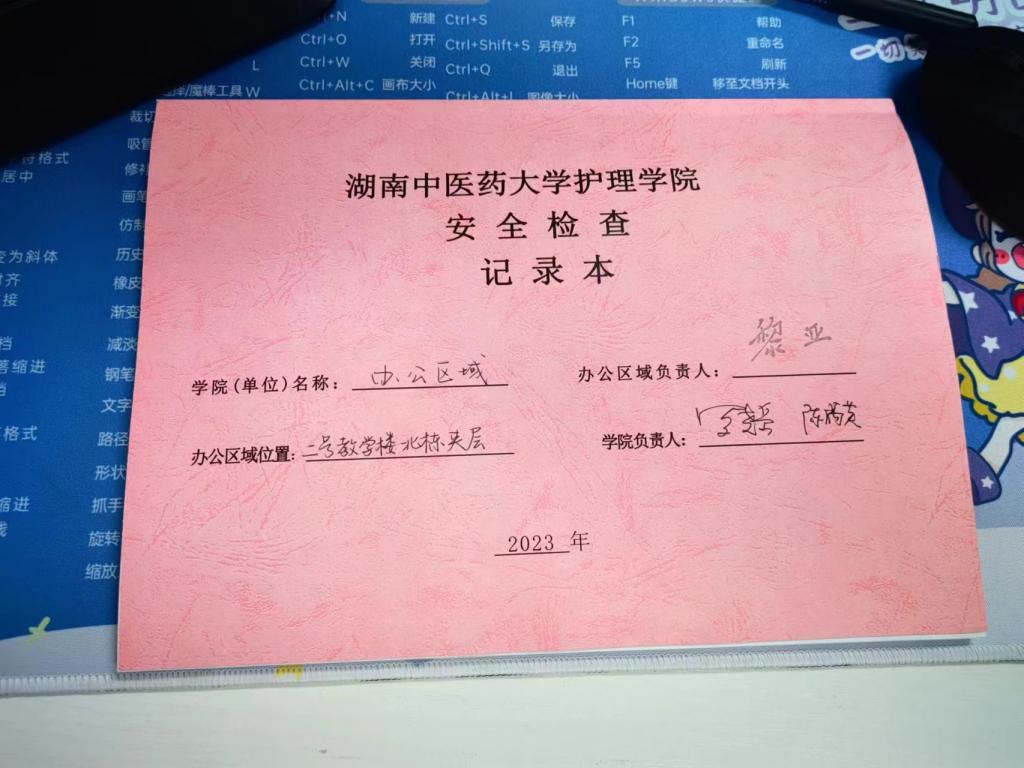 Ctrl+N 新建 Ctrl+S 保存 F1 帮助
Ctrl+O 打开 Ctrl+Shift+S 另存为 F2 重命名
Ctrl+W 关闭 Ctrl+Q 退出 F5 刷新
L
Ctrl+Alt+C 画布大小 Ctrl+Alt+I 图像大小 Home键 移至文档开头
魔棒工具 W
一切
裁切
吸管
修补
画笔
仿制
历史
橡皮
渐变
减淡
钢笔
文字
路径
形状
抓手
旋转
缩放
符格式
居中
变为斜体
对齐
接
档
落缩进
格式
缩进
湖南中医药大学护理学院
安全检查
记录本
学院(单位)名称: 办公区域
办公区域负责人: 黎亚
办公区域位置: 二号教学楼北栋夹层
学院负责人:
2023 年